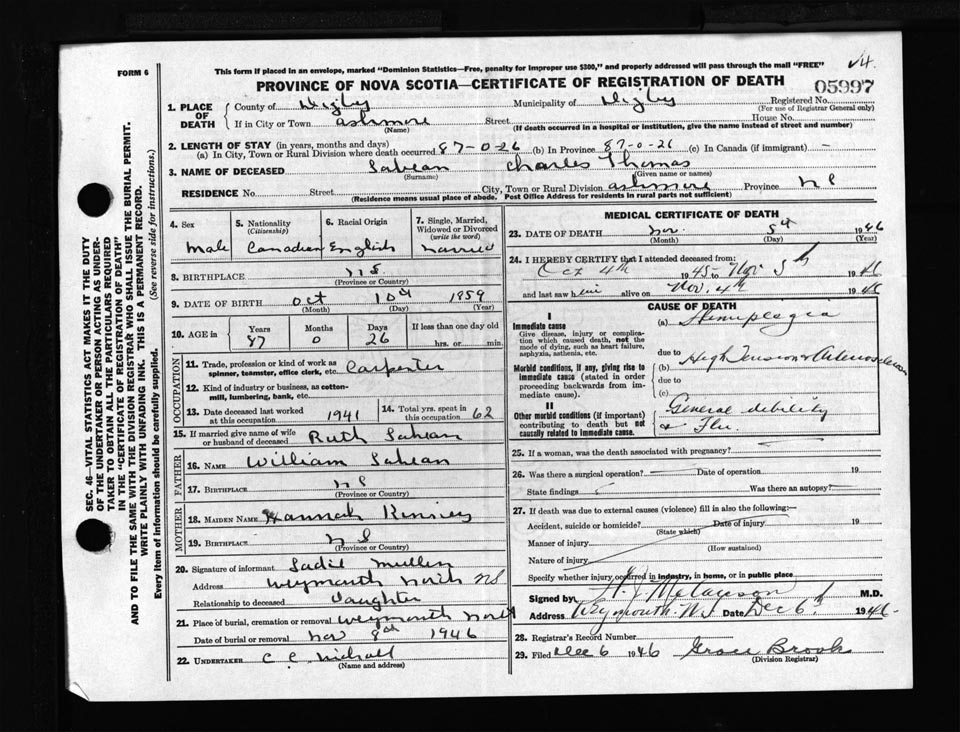 FORM 6
This form if placed in an envelope, marked "Dominion Statistics—Free, penalty for improper use $300," and properly addressed will pass through the mail "FREE"
PROVINCE OF NOVA SCOTIA—CERTIFICATE OF REGISTRATION OF DEATH
05997
Registered No.
(For use of Registrar General only)
1. PLACE OF DEATH
County of Digby Municipality of Digby
If in City or Town ashmore Street House No.
(Name) (If death occurred in a hospital or institution, give the name instead of street and number)
2. LENGTH OF STAY (in years, months and days)
(a) In City, Town or Rural Division where death occurred 87-0-26 (b) In Province 87-0-26 (c) In Canada (if immigrant) —
3. NAME OF DECEASED Sabean Charles Thomas
(Surname) (Given name or names)
RESIDENCE No. Street City, Town or Rural Division ashmore Province N S
(Residence means usual place of abode. Post Office Address for residents in rural parts not sufficient)
4. Sex
Male
5. Nationality
(Citizenship)
Canadian
6. Racial Origin
English
7. Single, Married, Widowed or Divorced
(write the word)
married
8. BIRTHPLACE N S
(Province or Country)
9. DATE OF BIRTH Oct 10th 1859
(Month) (Day) (Year)
10. AGE in
Years Months Days If less than one day old
87 0 26 hrs. or min.
OCCUPATION
11. Trade, profession or kind of work as
spinner, teamster, office clerk, etc. Carpenter
12. Kind of industry or business, as cotton-
mill, lumbering, bank, etc.
13. Date deceased last worked
at this occupation 1941
14. Total yrs. spent in
this occupation 62
15. If married give name of wife
or husband of deceased Ruth Sabean
FATHER
16. NAME William Sabean
17. BIRTHPLACE N S
(Province or Country)
MOTHER
18. MAIDEN NAME Hannah Kinney
19. BIRTHPLACE N S
(Province or Country)
20. Signature of informant Sadie Mullen
Address Weymouth North NS
Relationship to deceased Daughter
21. Place of burial, cremation or removal Weymouth North
Date of burial or removal Nov 8th 1946
22. UNDERTAKER C C
(Name and address)
MEDICAL CERTIFICATE OF DEATH
23. DATE OF DEATH Nov. 5th 1946
(Month) (Day) (Year)
24. I HEREBY CERTIFY that I attended deceased from:
Oct 4th 1945 - Nov 5th 1946
and last saw him alive on Nov. 4th 1946
CAUSE OF DEATH
I
Immediate cause
Give disease, injury or complica-
tion which caused death, not the
mode of dying, such as heart failure,
asphyxia, asthenia, etc.
(a) Hemiplegia
due to
Morbid conditions, if any, giving rise to
immediate cause (stated in order
proceeding backwards from im-
mediate cause).
(b) High Tension & Arteriosclerosis
due to
(c)
II
Other morbid conditions (if important)
contributing to death but not
causally related to immediate cause.
General debility
& Flu.
25. If a woman, was the death associated with pregnancy?
26. Was there a surgical operation? Date of operation 19
State findings Was there an autopsy?
27. If death was due to external causes (violence) fill in also the following:—
Accident, suicide or homicide? Date of injury 19
(State which)
Manner of injury
(How sustained)
Nature of injury
Specify whether injury occurred in industry, in home, or in public place
Signed by M.D.
Address Weymouth. N.S Date Dec 6th 1946
28. Registrar's Record Number
29. Filed Dec 6 1946 Grace Brooks
(Division Registrar)
SEC. 46—VITAL STATISTICS ACT MAKES IT THE DUTY
OF THE UNDERTAKER OR PERSON ACTING AS UNDER-
TAKER TO OBTAIN ALL THE PARTICULARS REQUIRED
IN THE "CERTIFICATE OF REGISTRATION OF DEATH"
AND TO FILE THE SAME WITH THE DIVISION REGISTRAR WHO SHALL ISSUE THE BURIAL PERMIT.
WRITE PLAINLY WITH UNFADING INK. THIS IS A PERMANENT RECORD.
Every item of information should be carefully supplied. (See reverse side for instructions.)